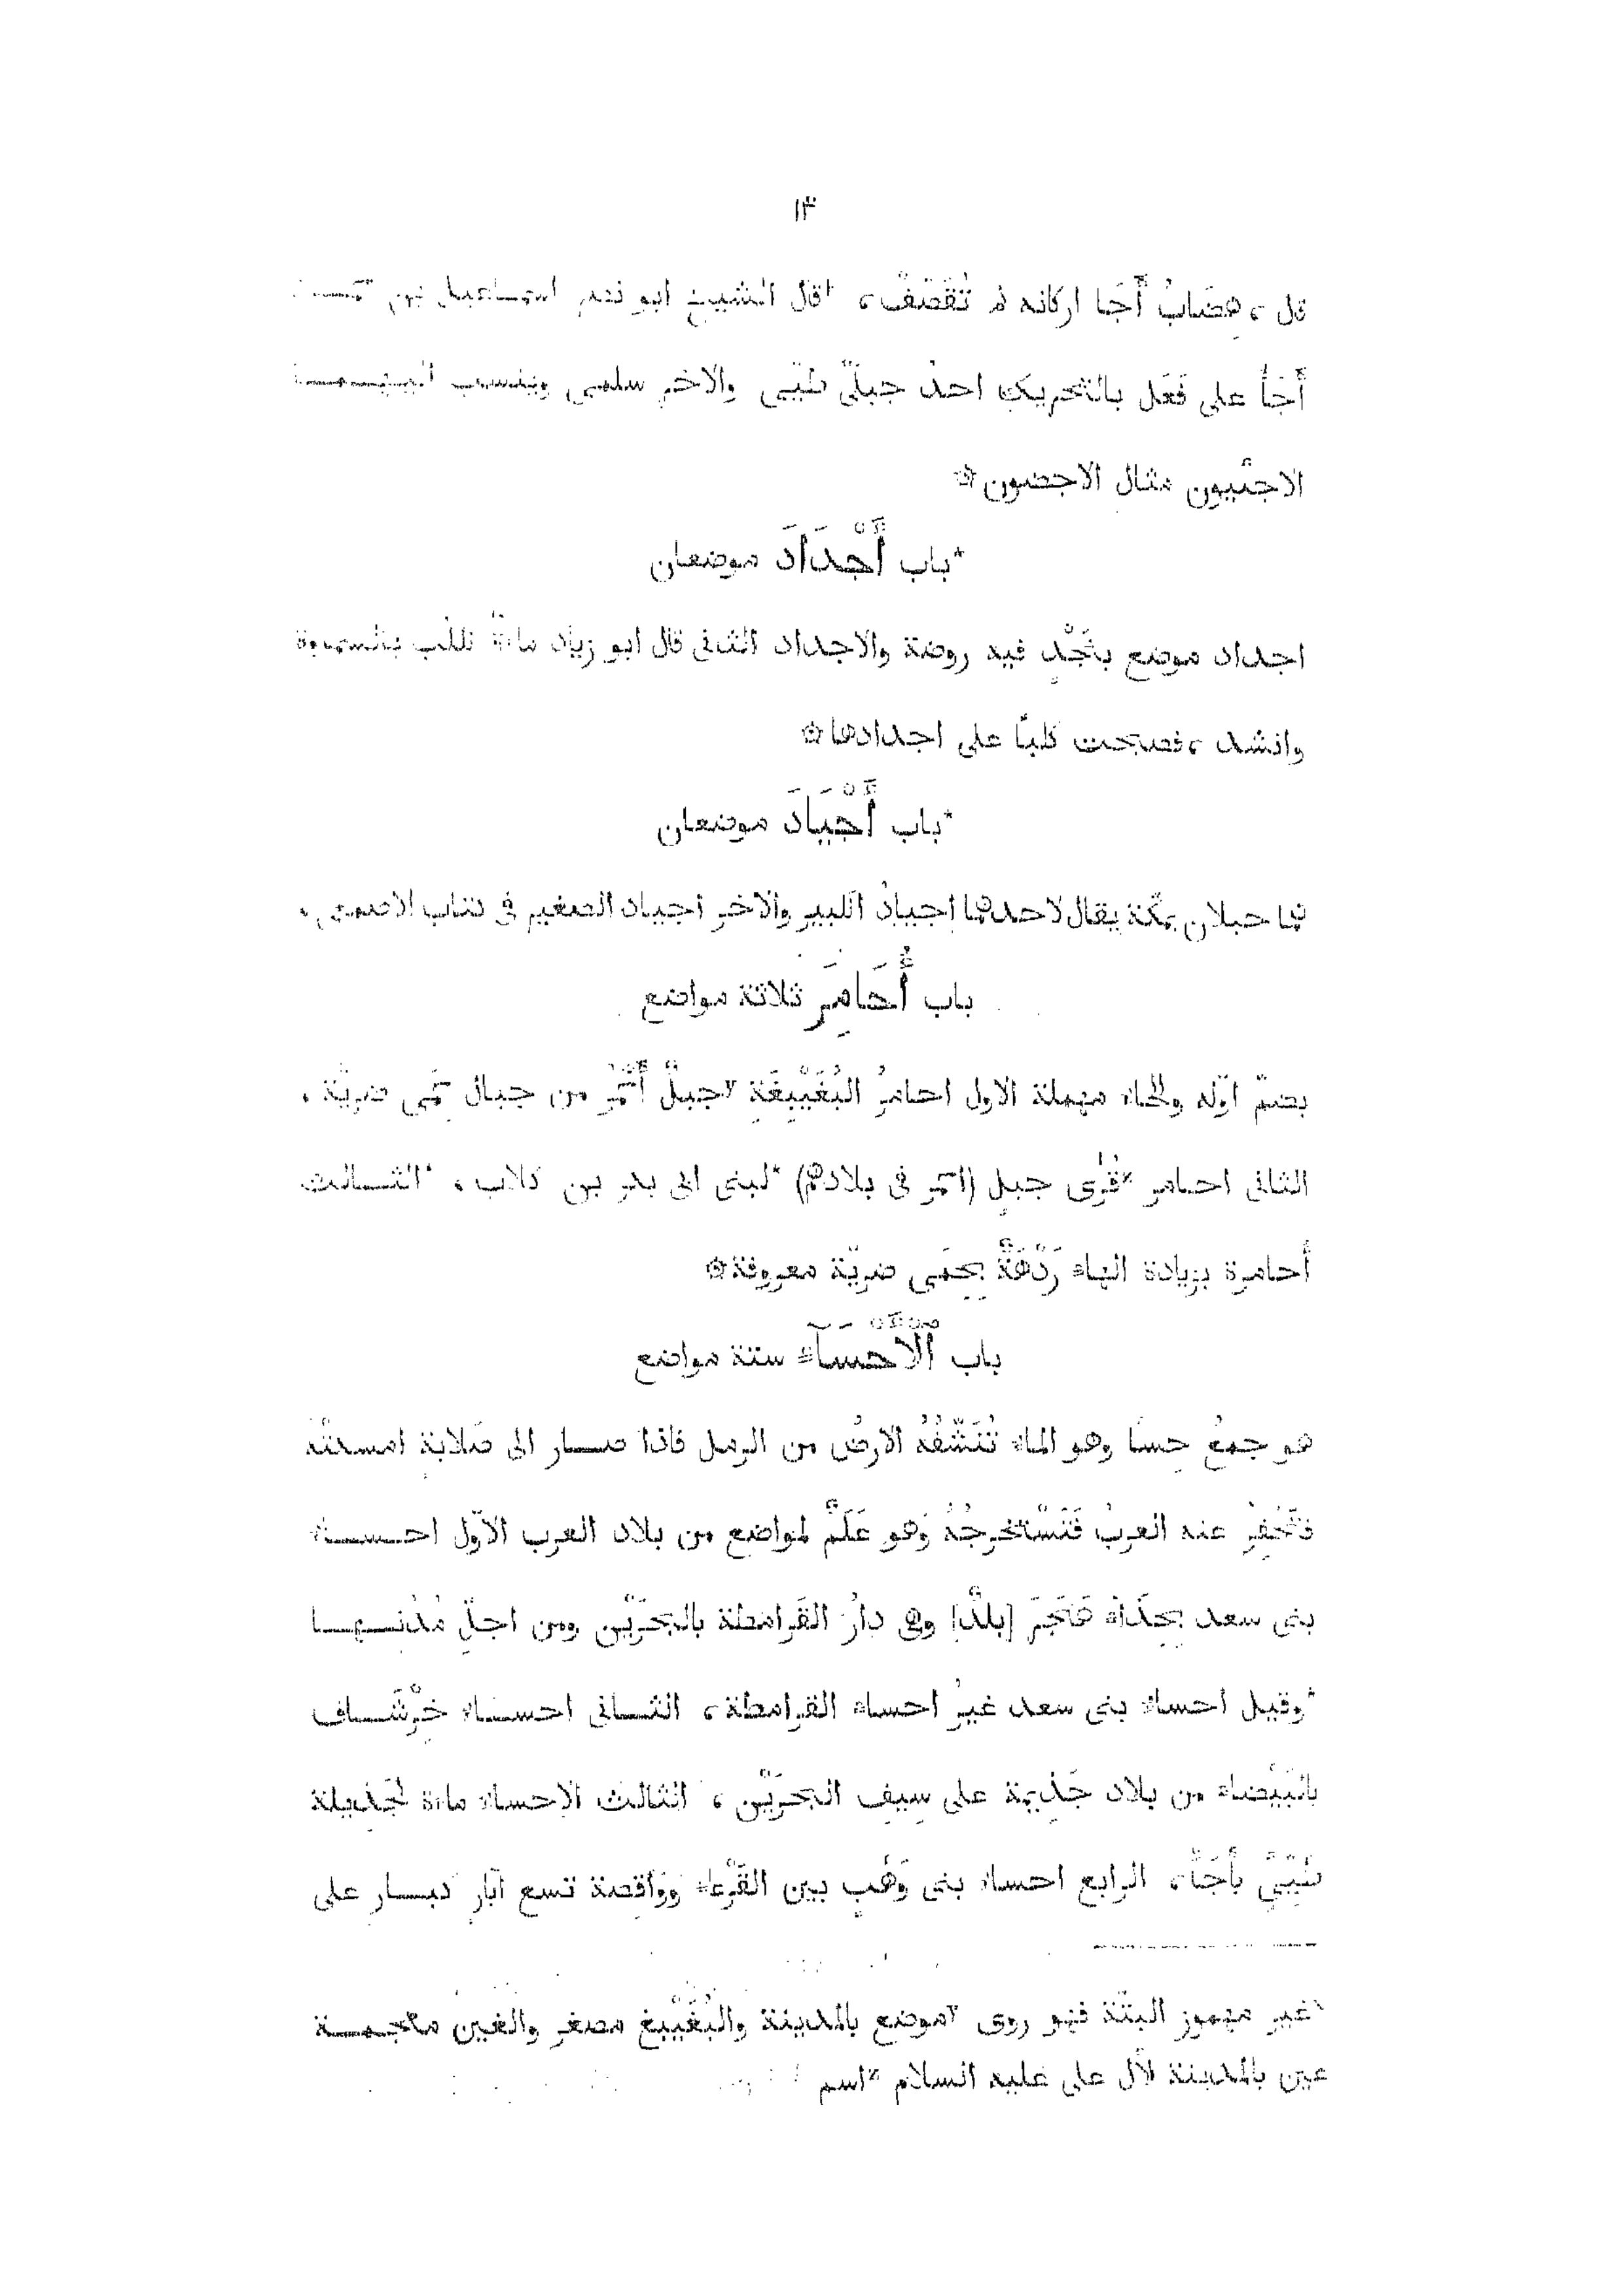 ١٣
قال ، هِضَابُ أَجَا اركانه لم تُقَصَّفْ ، قال الشيخ ابو نصر اسماعيل بن حمـــاد
أَجَأُ على فَعَل بالتحريك احدُ جبلَىْ طَيِّى والاخر سلمى وينسب اليهـــمـــا
الاجئيون مثال الاجعيون ۞
*باب أَجْدَادَ موضعان
اجداد موضع بنَجْدٍ فيه روضة والاجداد الثانى قال ابو زياد ماءة لكلب بالسماوة
وانشد ، فصبحت كلبًا على اجدادها ۞
*باب أَجْيَادَ موضعان
هما جبلان بمكّة يقال لاحدهما اجيادُ الكبير والاخر اجياد الصغير فى كتاب الاصمعى ،
باب أُحَامِرَ ثلاثة مواضع
بضمّ اوّله والحاء مهملة الاول احامرُ البُغَيْبِغَةِ ٢جبلٌ أَحْمَرُ من جبال حِمَى ضريّة ،
الثانى احامر قُرَى جبل (احمر فى بلادهم) *لبنى ابى بكر بن كلاب ، *الثـــالث
أُحامرة بزيادة الهاء رَدْهَةٌ بحِمَى ضريّة معروفة ۞
باب ٱلْأَحْسَآءِ ستة مواضع
هو جمعُ حِسًا وهو الماء تُنَشِّفُهُ الارضُ من الرمل فاذا صـــار الى صَلابةٍ امسكته
فتَحْفِرُ عنه العربُ فتَسْتخرجُهُ وَهو عَلَمٌ لمواضع من بلاد العرب الاوّل احـــســـاء
بنى سعد بحِذَاءِ هَجَرَ [بلدٌ] وهى دارُ القَرامطة بالبحْرَيْن ومن اجلّ مُدُنـــهـــا
*وقيل احساء بنى سعد غيرُ احساء القرامطة ، الثـــانى احســـاء خِرْشَـــاف
بالبَيْضاء من بلاد جَذِيمة على سِيفِ البحْرَيْن ، الثالث الاحساء ماءة لجَدِيلة
طَيِّىءٍ بأَجَأَ ، الرابع احساء بنى وَهْبٍ بين القَرْعاء وَوَاقصة تسع آبارٍ كبـــار على
١غير مهموز البتّة فهو روى ٢موضع بالمدينة والبُغَيْبِغ مصغر والغين معجمـــة
عين بالمدينة لآل على عليه السلام اسم